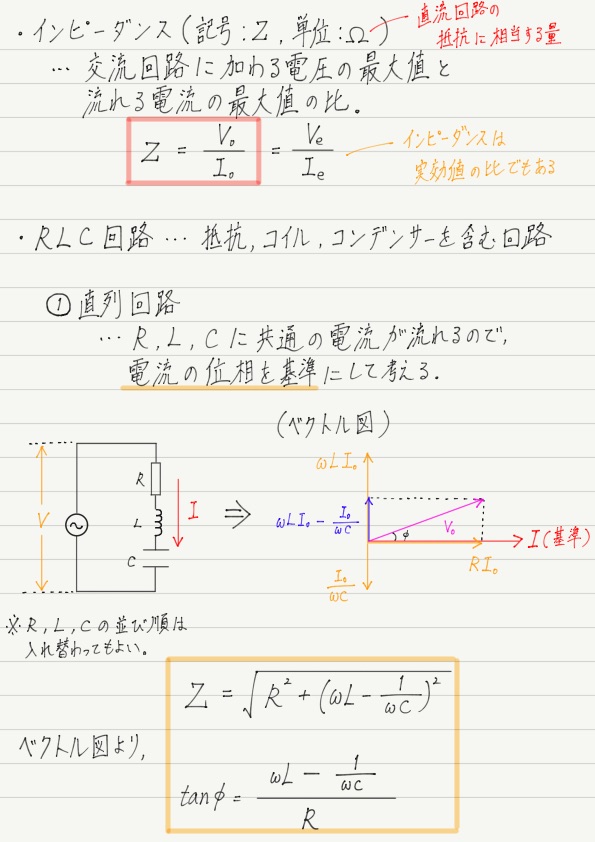 ・インピーダンス（記号：Z，単位：Ω）
直流回路の
抵抗に相当する量
… 交流回路に加わる電圧の最大値と
流れる電流の最大値の比．
Z = V₀/I₀ = Ve/Ie
インピーダンスは
実効値の比でもある
・RLC回路 … 抵抗，コイル，コンデンサーを含む回路
① 直列回路
… R，L，Cに共通の電流が流れるので，
電流の位相を基準にして考える．
（ベクトル図）
V
R
L
C
I
⇒
ωLI₀
ωLI₀ − I₀/ωC
V₀
φ
I（基準）
RI₀
I₀/ωC
※R，L，Cの並び順は
入れ替わってもよい。
Z = √(R² + (ωL − 1/ωC)²)
ベクトル図より，
tanφ = (ωL − 1/ωC)/R